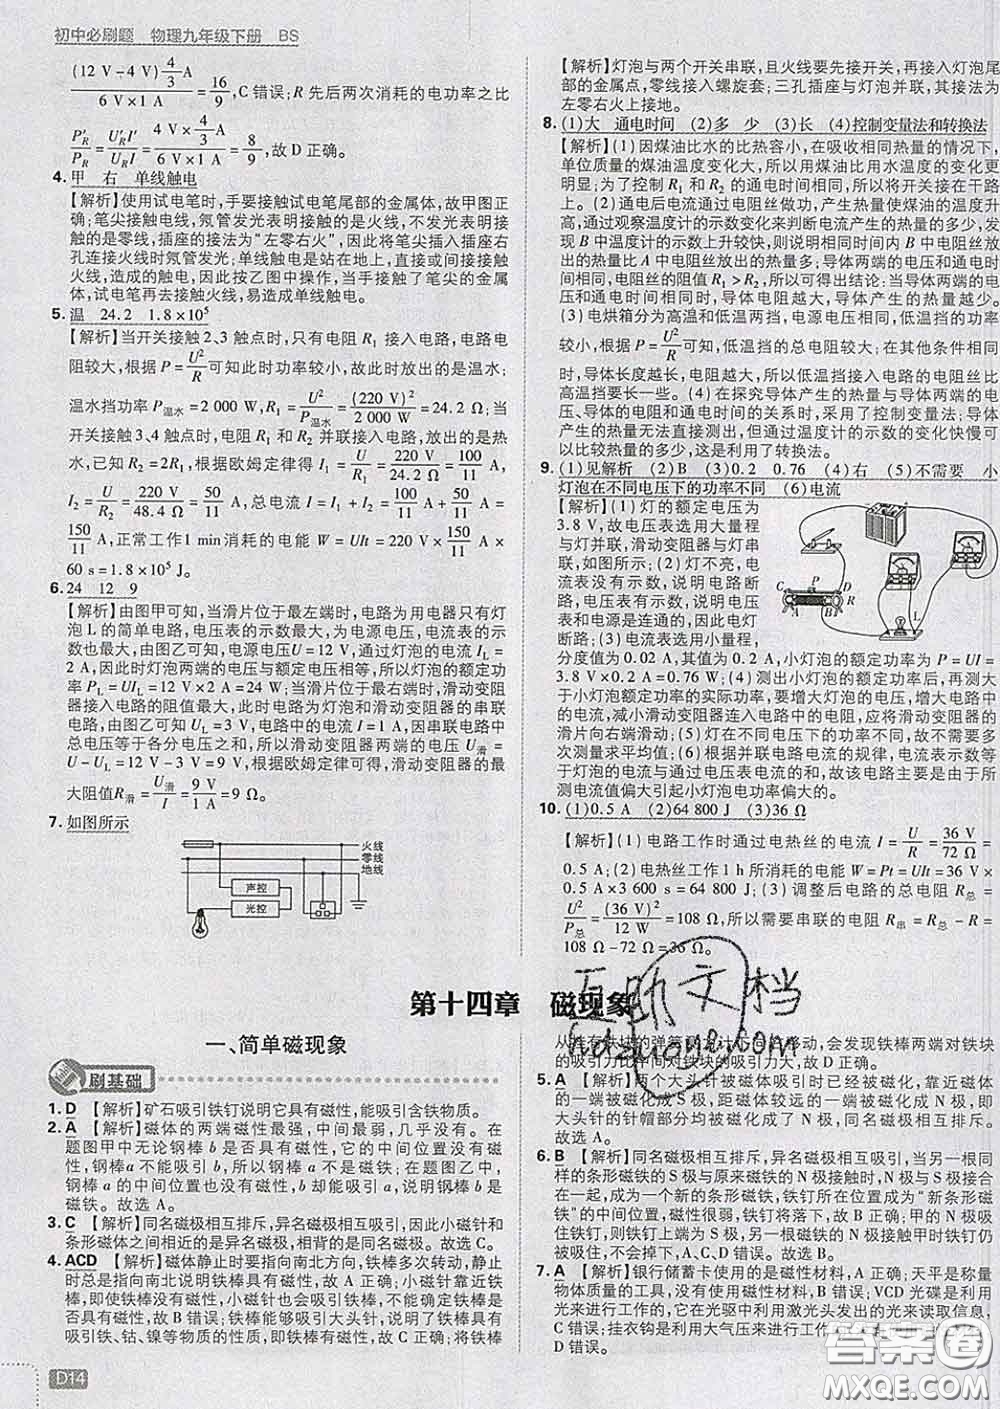 初中必刷题 物理九年级下册 BS
(12 V-4 V) 4/3 A / 6 V×1 A = 16/9, C 错误; R 先后两次消耗的电功率之比
P′R/PR = U′R I′/UR I = 4 V× 4/3 A / 6 V×1 A = 8/9, 故 D 正确。
4. 甲 右 单线触电
【解析】使用试电笔时,手要接触试电笔尾部的金属体,故甲图正
确;笔尖接触电线,氖管发光表明接触的是火线,不发光表明接触
的是零线,插座的接法为“左零右火”,因此将笔尖插入插座右
孔连接火线时氖管发光;单线触电是站在地上,直接或间接接触
火线,造成的触电,因此按乙图中操作,当手接触了笔尖的金属
体,试电笔再去接触火线,易造成单线触电。
5. 温 24.2 1.8×10⁵
【解析】当开关接触2、3触点时,只有电阻 R₁ 接入电路,电路电
阻较大,根据 P=U²/R 可知此时功率较小,故此时放出的是温水;
温水挡功率 P温水=2 000 W, R₁=U²/P温水=(220 V)²/2 000 W=24.2 Ω;当
开关接触3、4触点时,电阻 R₁ 和 R₂ 并联接入电路,放出的是热
水,已知 R₂=2R₁,根据欧姆定律得 I₁=U/R₁=220 V/24.2 Ω=100/11 A,
I₂=U/R₂=220 V/48.4 Ω=50/11 A,总电流 I=I₁+I₂=100/11 A+50/11 A=
150/11 A,正常工作1 min消耗的电能 W=UIt=220 V×150/11 A×
60 s=1.8×10⁵ J。
6. 24 12 9
【解析】由图甲可知,当滑片位于最左端时,电路为用电器只有灯
泡 L 的简单电路,电压表的示数最大,为电源电压,电流表的示
数也最大,由图乙可知,电源电压 U=12 V,通过灯泡的电流 IL=
2 A,因此时灯泡两端的电压与额定电压相等,所以灯泡的额定功
率 PL=UIL=12 V×2 A=24 W;当滑片位于最右端时,滑动变阻
器接入电路的阻值最大,此时电路为灯泡和滑动变阻器的串联
电路,由图乙可知 UL=3 V,电路中的电流 I=1 A,因串联电路中
总电压等于各分电压之和,所以滑动变阻器两端的电压 U滑=
U-UL=12 V-3 V=9 V,由欧姆定律可得,滑动变阻器的最
大阻值 R滑=U滑/I=9 V/1 A=9 Ω。
7. 如图所示
火线
零线
地线
声控
光控
【解析】灯泡与两个开关串联,且火线要先接开关,再接入灯泡尾
部的金属点,零线接入螺旋套;三孔插座与灯泡并联,其接法为
左零右火上接地。
8. (1)大 通电时间 (2)多 少 (3)长 (4)控制变量法和转换法
【解析】(1)因煤油比水的比热容小,在吸收相同热量的情况下,
单位质量的煤油温度变化大,所以用煤油比用水温度的变化更
明显;为了控制 R₁ 和 R₂ 的通电时间相同,所以将开关接在干路
上。(2)通电后电流通过电阻丝做功,产生热量使煤油的温度升
高,通过观察温度计的示数变化来判断电流产生的热量的多少,发
现 B 中温度计的示数上升较快,则说明相同时间内 B 中电阻丝放
出的热量比 A 中电阻丝放出的热量多;导体两端的电压和通电时
间相同,电阻丝的阻值 R₁>R₂,所以可以得出:当导体两端的电压
和通电时间相同时,导体电阻越大,导体产生的热量越少。
(3)电烘箱分为高温和低温两挡,电源电压相同,低温挡的功率
较小,根据 P=U²/R 可知,低温挡的总电阻较大;在其他条件相同
时,导体长度越长,电阻越大,所以低温挡接入电路的电阻丝比
高温挡要长一些。(4)在探究导体产生的热量与导体两端的电
压、导体的电阻和通电时间的关系时,采用了控制变量法;导体
产生的热量无法直接测出,但通过温度计的示数的变化快慢可
以比较热量的多少,这是利用了转换法。
9. (1)见解析 (2)B (3)0.2 0.76 (4)右 (5)不需要 小
灯泡在不同电压下的功率不同 (6)电流
【解析】(1)灯的额定电压为
3.8 V,故电压表选用大量程
与灯并联,滑动变阻器与灯串
联,如图所示;(2)灯不亮,电
流表没有示数,说明电路断
路,电压表有示数,说明电压
表与电源是连通的,因此电灯
断路;(3)电流表选用小量程,
分度值为 0.02 A,其示数为 0.2 A,小灯泡的额定功率为 P=UI=
3.8 V×0.2 A=0.76 W;(4)测出小灯泡的额定功率后,再测大
于小灯泡额定功率的实际功率,要增大灯泡的电压,增大电路中
的电流,减小滑动变阻器连入电路中的电阻,应将滑动变阻器的
滑片向右端滑动;(5)灯在不同电压下的功率不同,故不需要多
次测量求平均值;(6)根据并联电路电流的规律,电流表示数等
于灯泡的电流与通过电压表电流的和,故该电路主要是因所
测电流值偏大引起小灯泡电功率偏大的。
10. (1)0.5 A (2)64 800 J (3)36 Ω
【解析】(1)电路工作时通过电热丝的电流 I=U/R=36 V/72 Ω=
0.5 A;(2)电热丝工作1 h 所消耗的电能 W=Pt=UIt=36 V×
0.5 A×3 600 s=64 800 J;(3)调整后电路的总电阻 R总=
U²/P总=(36 V)²/12 W=108 Ω,所以需要串联的电阻 R串=R总-R=
108 Ω-72 Ω=36 Ω。
第十四章 磁现象
一、简单磁现象
刷基础
1. D 【解析】矿石吸引铁钉说明它具有磁性,能吸引含铁物质。
2. A 【解析】磁体的两端磁性最强,中间最弱,几乎没有。在
题图甲中无论钢棒 b 是否具有磁性,它的中间位置没有磁
性,钢棒 a 不能吸引 b,所以钢棒 a 不是磁铁;在题图乙中,
钢棒 a 的中间位置也没有磁性,b 却能吸引 a,说明 b 就是
磁铁。故选 A。
3. C 【解析】同名磁极相互排斥,异名磁极相互吸引,因此小磁针和
条形磁体之间相近的是异名磁极,相背的是同名磁极。故选 C。
4. ACD 【解析】磁体静止时要指向南北方向,铁棒多次转动,静止
时总是指向南北说明铁棒具有磁性,故 A 正确;小磁针靠近铁
棒,即使铁棒没有磁性,小磁针也会吸引铁棒,不能确定铁棒是
否具有磁性,故 B 错误;铁棒能吸引大头针,说明了铁棒具有
吸引铁、钴、镍等物质的性质,即铁棒具有磁性,故 C 正确;将铁棒
从挂有铁块的弹簧测力计下向右移动,会发现铁棒两端对铁块
的吸引力比中间对铁块的吸引力大,
5. A 【解析】两个大头针被磁体吸引时已经被磁化,靠近磁体
的一端被磁化成 S 极,距磁体较远的一端被磁化成 N 极,即大
头针的针帽部分均被磁化成了 N 极,同名磁极相互排斥。
故选 A。
6. B 【解析】同名磁极相互排斥,异名磁极相互吸引,当另一根同
样的条形磁铁的 S 极与原来磁铁的 N 极接触时,甲的 N 极与乙
的 S 极成为一个新的条形磁铁,铁钉所在位置成为“新条形
磁铁”的中间位置,磁性很弱,铁钉受力很小;甲的 N 极吸
住铁钉,则铁钉上方为 S 极,下方为 N 极,因此甲向下时铁钉仍
被吸住,不会落下,A、C、D 错误。故选 B。
7. A 【解析】银行储蓄卡使用的是磁性材料,A 正确;天平是称量
物体质量的工具,没有使用磁性材料,B 错误;VCD 光碟是利用
光来进行工作的,它在光驱中利用激光头发出的光来读取信息,
C 错误;挂衣钩是利用大气压来进行工作
D14
互助文档
hdzuoye.com
答案圈
MXQE.COM